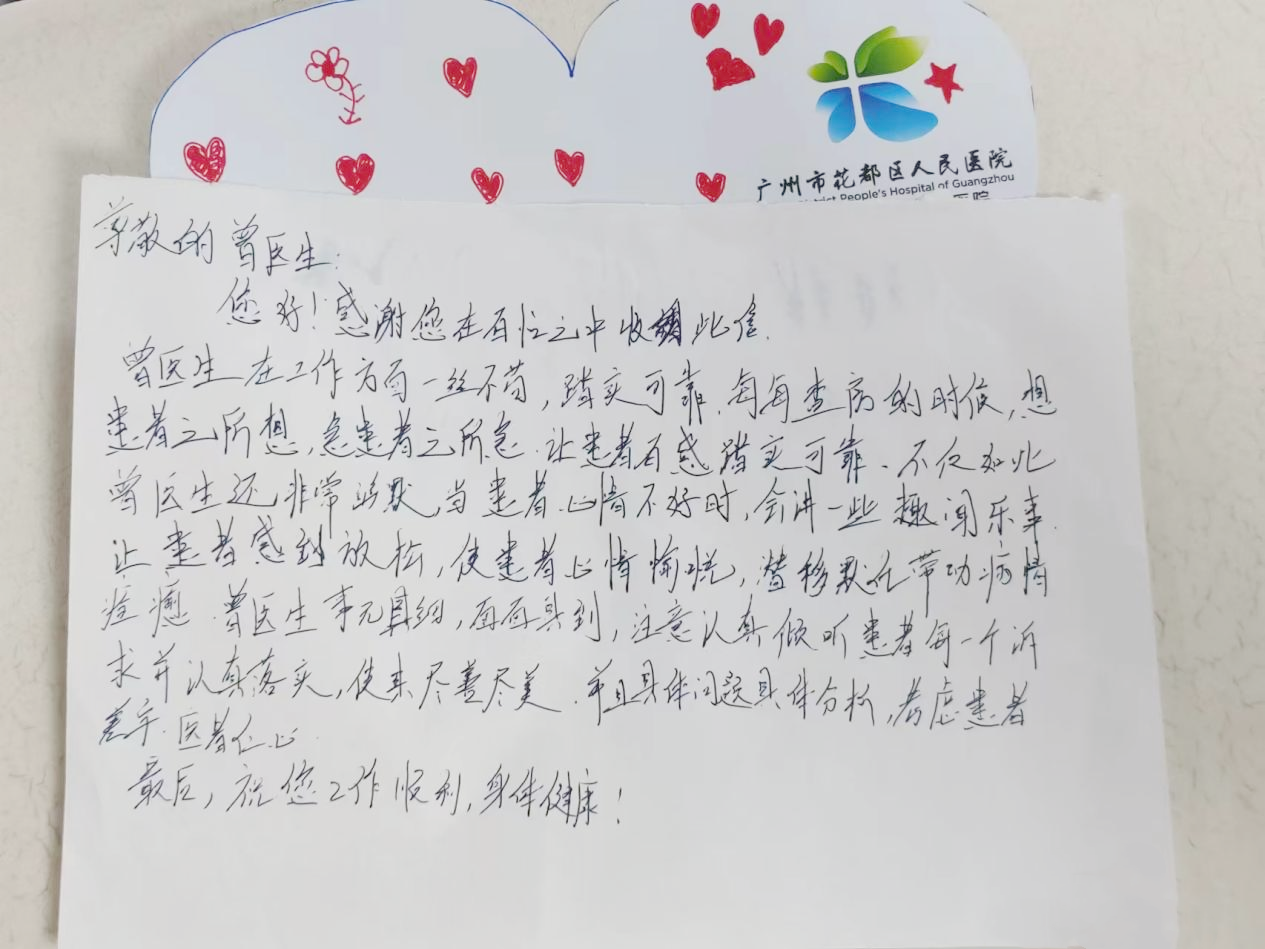 广州市花都区人民医院
District People's Hospital of Guangzhou
医院
尊敬的曾医生:
您好!感谢您在百忙之中收到此信.
曾医生在工作方面一丝不苟,踏实可靠.每每查病的时候,想
患者之所想,急患者之所急.让患者百感踏实可靠.不仅如此
曾医生还非常幽默,当患者心情不好时,会讲一些趣闻乐事.
让患者感到放松,使患者心情愉悦,潜移默化带动病情
痊癒.曾医生事无具细,面面具到,注意认真倾听患者每一个诉
求并认真落实,使来尽善尽美.并且具体问题具体分析,考虑患者
差宇.医者仁心.
最后,祝您工作顺利,身体健康!